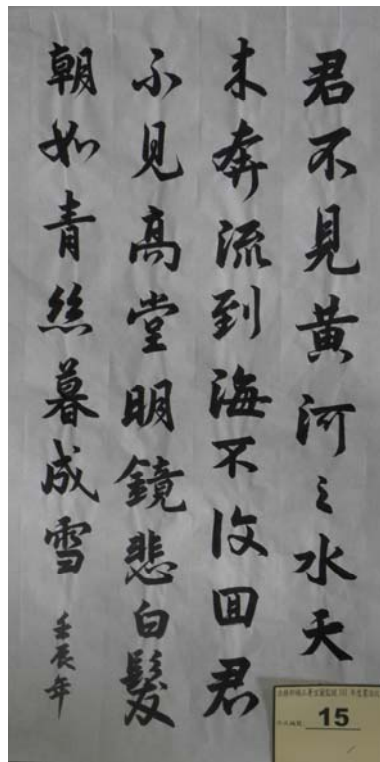 君不見黄河之水天
来奔流到海不復回君
不見高堂明鏡悲白髮
朝如青絲暮成雪
壬辰年
15